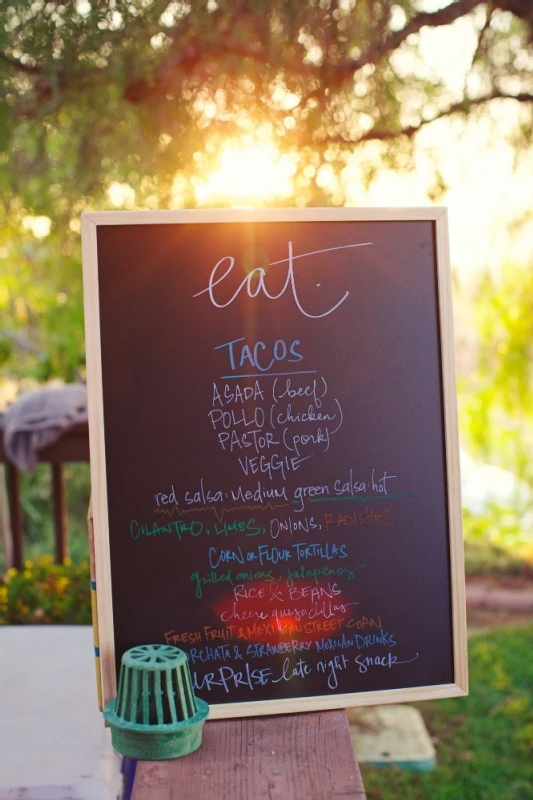 eat.
TACOS
ASADA (beef)
POLLO (chicken)
PASTOR (pork)
VEGGIE
red salsa·medium green salsa·hot
CILANTRO, LIMES, ONIONS, RADISHES
CORN or FLOUR TORTILLAS
grilled onions, jalapenos
RICE & BEANS
cheese quesadillas
FRESH FRUIT & MEXICAN STREET CORN
RCHATA & STRAWBERRY MEXICAN DRINKS
URPRISE late night snack